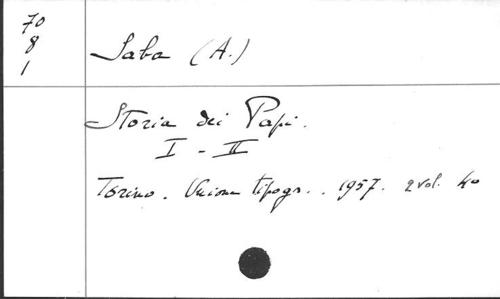 70
8
1
Saba (A.)
Storia dei Papi.
I - II
Torino. Unione tipogr.. 1957. 2 vol. 4o